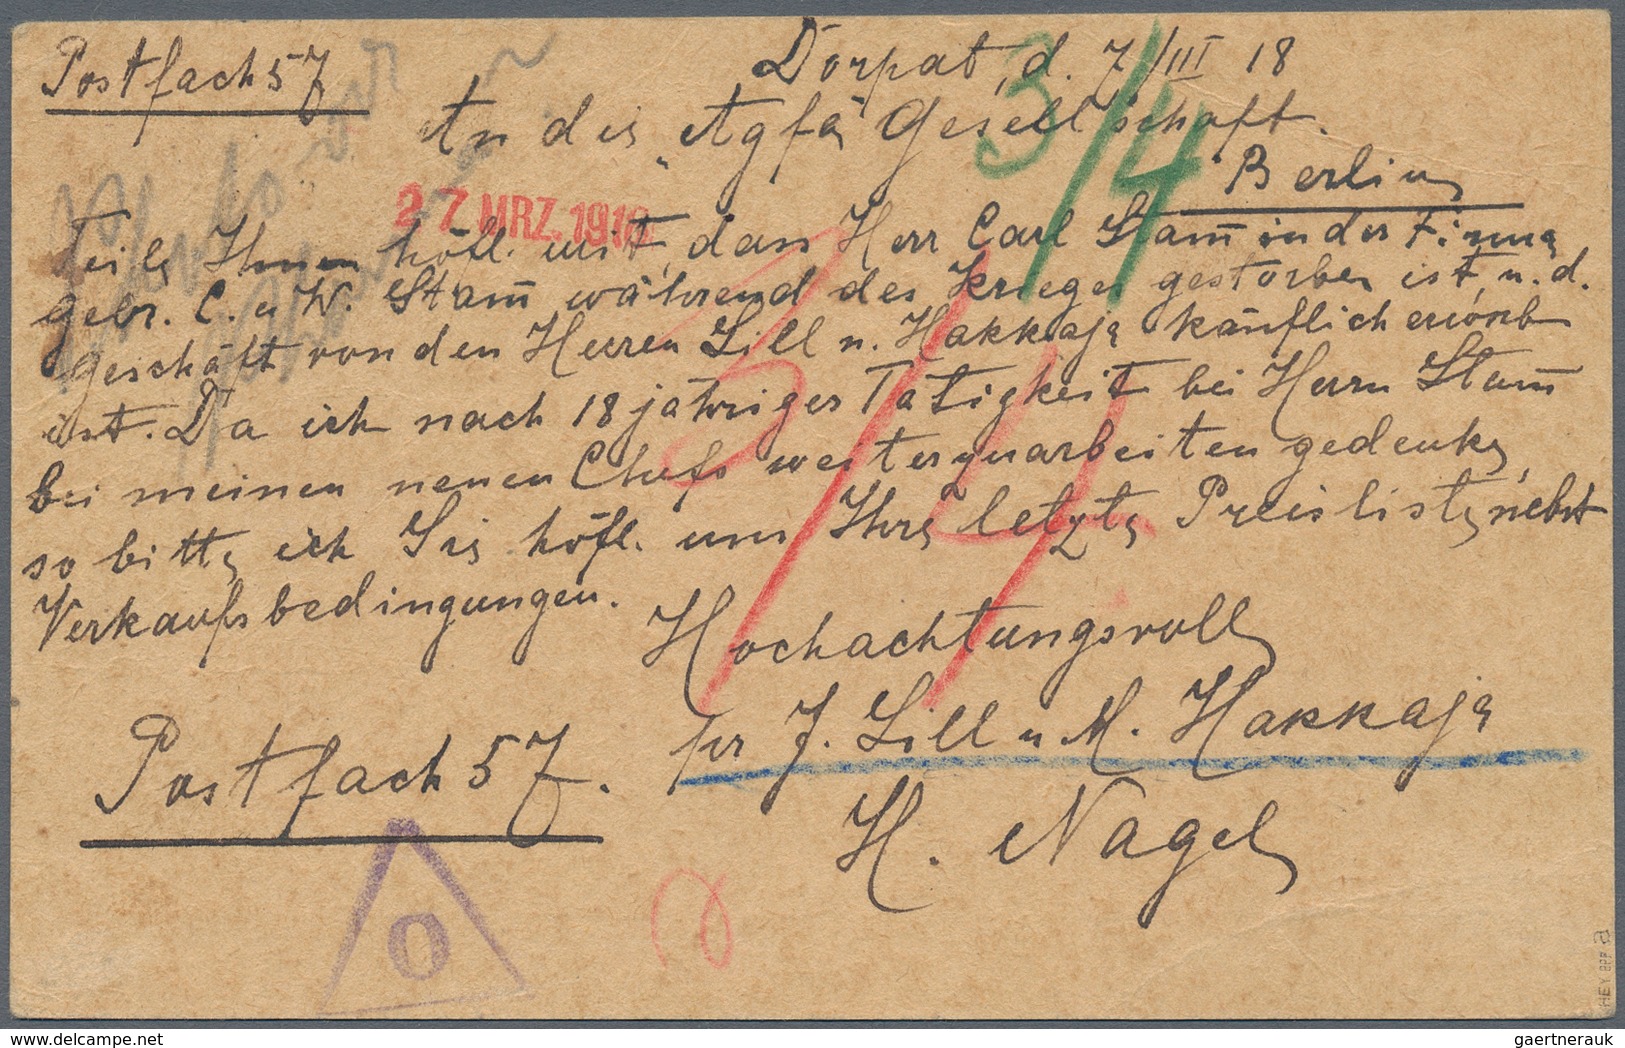 Postfach 57
Dorpat, d. 7/III 18
3/4
An die „Agfa" Gesellschaft.
Berlin
27. MRZ. 1918
Teile Ihnen höfl. mit, dass Herr Carl Stam̄ in der Firma
gebr. C. u W. Stam̄ während des Krieges gestorben ist, u. d.
geschäft von den Herren Sill u. Hakkaja käuflich erworb
ist. Da ich nach 18 jähriger Tätigkeit bei Herrn Stam̄
bei meinen neuen Chefs weiterzuarbeiten gedenke,
so bitte ich Sie höfl. um Ihre letzte Preisliste nebst
Verkaufsbedingungen.
Hochachtungsvoll
pr J. Sill u M. Hakkaja
H. Nagel
Postfach 57.
O
HEY BPP
gaertnerauk